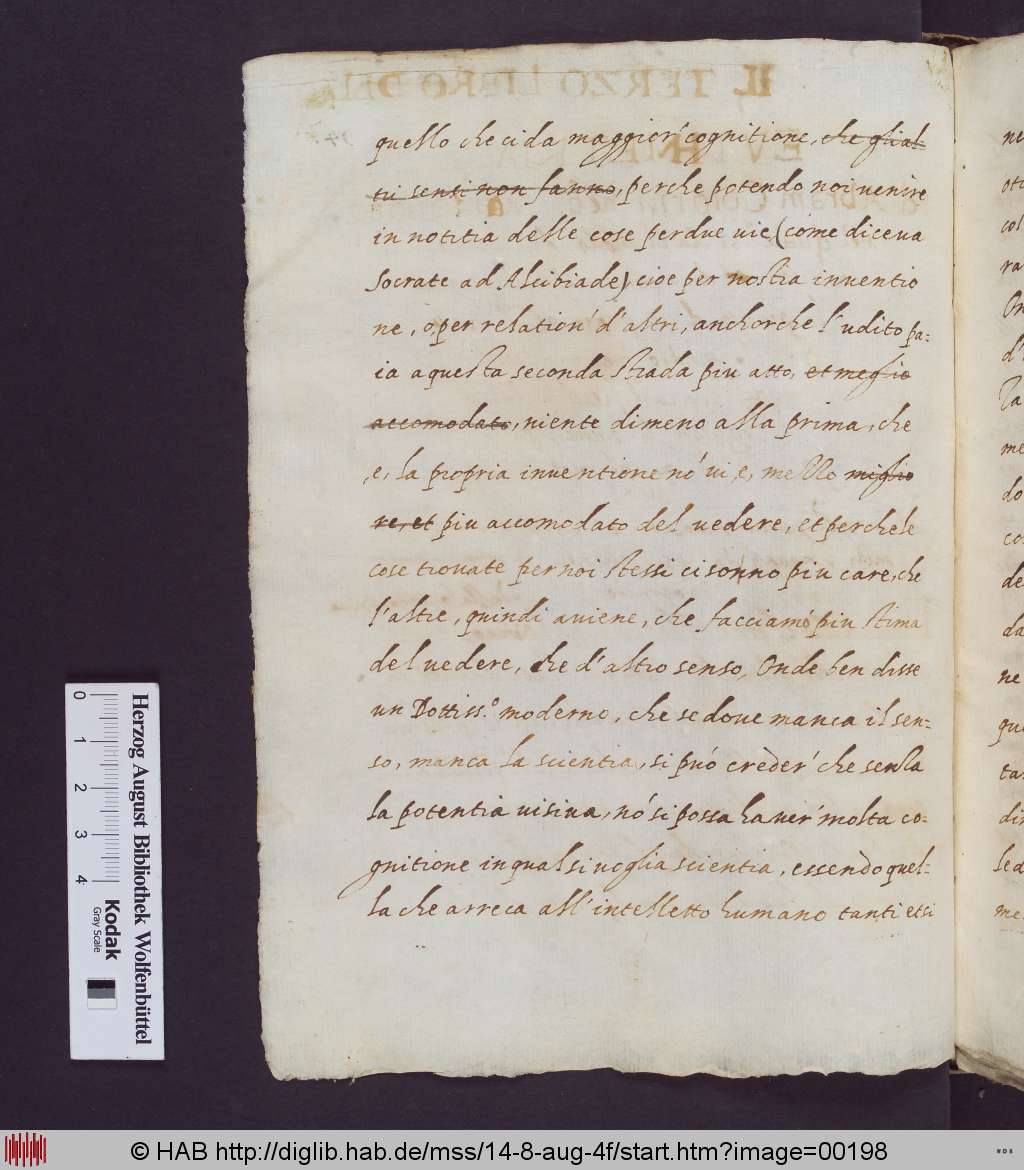 quello che ci da maggior' cognitione, che gli al-
tri sensi non fanno, perche potendo noi venire
in notitia delle cose per due vie (come diceva
Socrate ad Alcibiade) cioe per nostra inventio
ne, o per relation' d'altri, anchorche l'udito pa-
ia a questa seconda strada piu atto, et meglio
accomodato, niente dimeno alla prima, che
e, la propria inventione nó vi e, mezzo miglio
re, et piu accomodato del vedere, et perche le
cose trovate per noi stessi ci sonno piu care, che
l'altre, quindi aviene, che facciamó piu stima
del vedere, che d'altro senso, Onde ben disse
un Dottiss.º moderno, che se dove manca il sen-
so, manca la scientia, si puó crèder' che senza
la potentia visiva, nó si possa haver' molta co-
gnitione in qual si voglia scientia, essendo quel-
la che arreca all'intelletto humano tanti et si
IL TERZO LIBRO DEL
0
1
2
3
4
Herzog August Bibliothek Wolfenbüttel
Kodak
Gray Scale
© HAB http://diglib.hab.de/mss/14-8-aug-4f/start.htm?image=00198